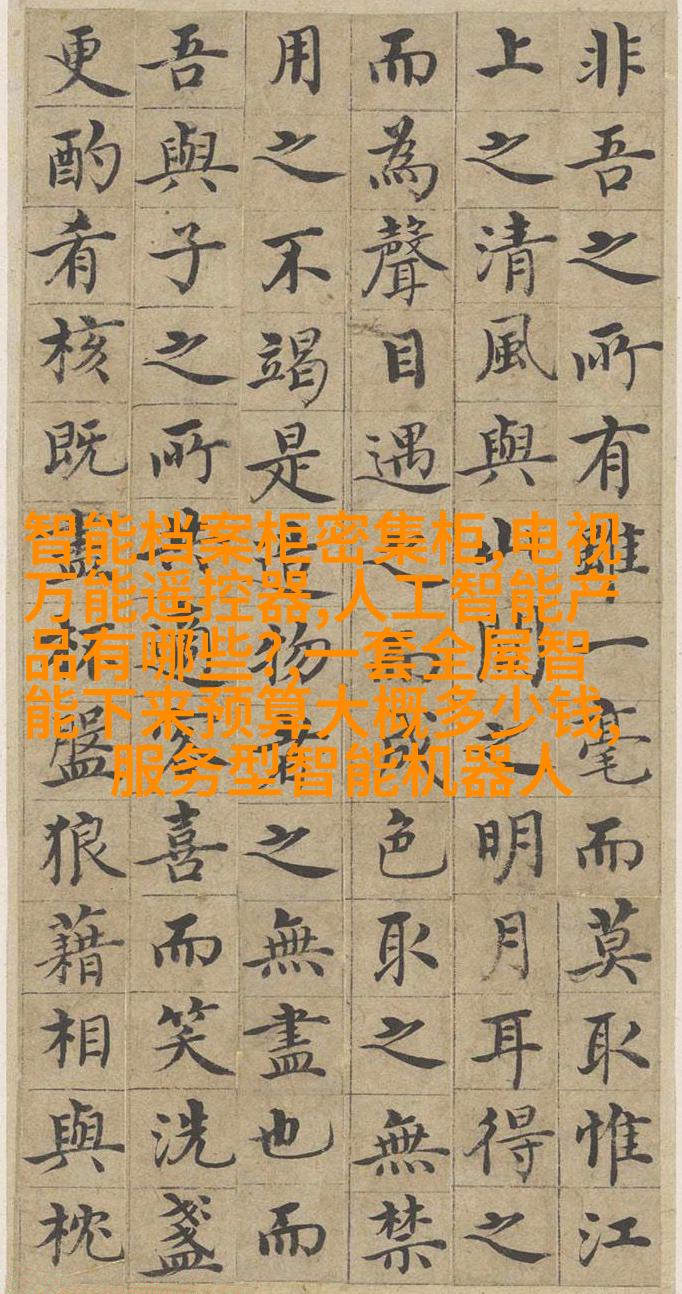 非吾之所有雖一毫而莫取惟江
上之清風與山間之明月耳得之
而為聲目遇之而成色取之無禁
用之不竭是造物者之無盡也而
吾與子之所共適客喜而笑洗盞
更酌肴核既盡杯盤狼藉相與枕
智能档案柜密集柜,电视
万能遥控器,人工智能产
品有哪些?,一套全屋智
能下来预算大概多少钱,
服务型智能机器人